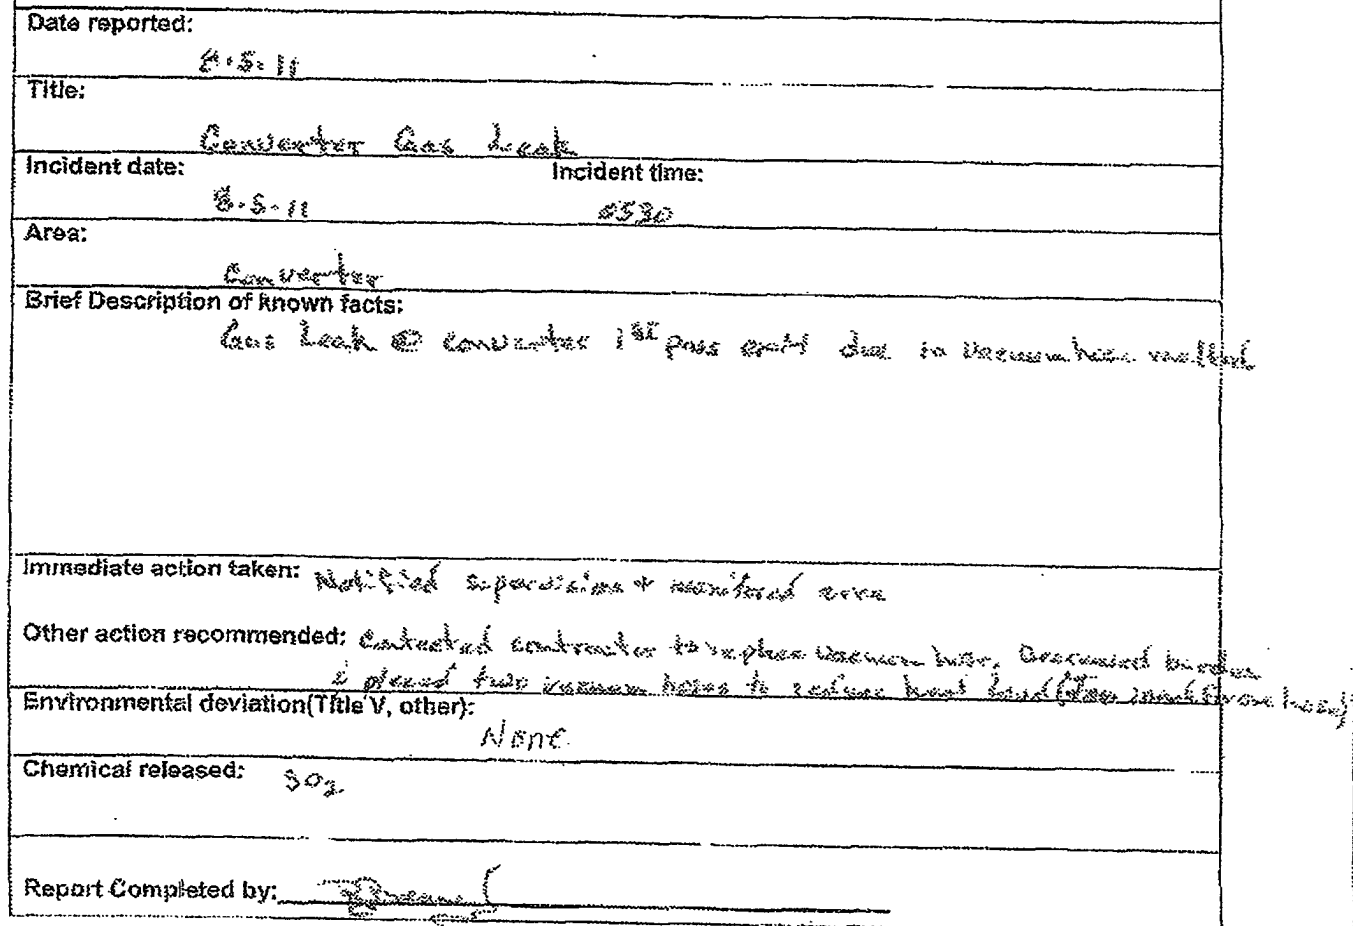 Date reported:
8.5.11
Title:
Converter Gas Leak
Incident date: Incident time:
8.5.11 0530
Area:
Converter
Brief Description of known facts:
Gas Leak @ converter 1st pass exit due to vacuum hose melted
Immediate action taken: Notified supervision + monitored area
Other action recommended: Contacted contractor to replace vacuum hose. Decreased burden
placed two vacuum hoses to reduce heat load
Environmental deviation(Title V, other):
None
Chemical released:
Report Completed by: